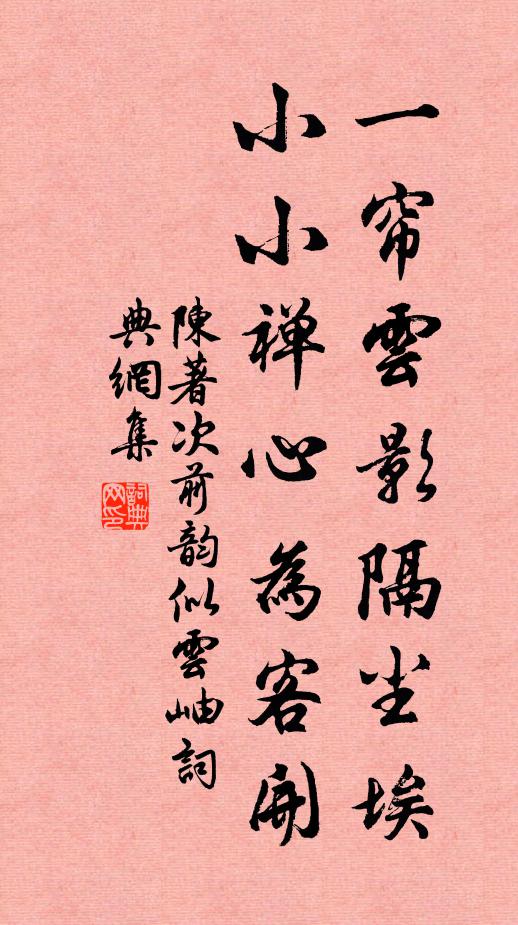 一帘雲影隔尘埃
小小禅心為客開
陳著次前韵似雲岫詞
典網集
詞典网印